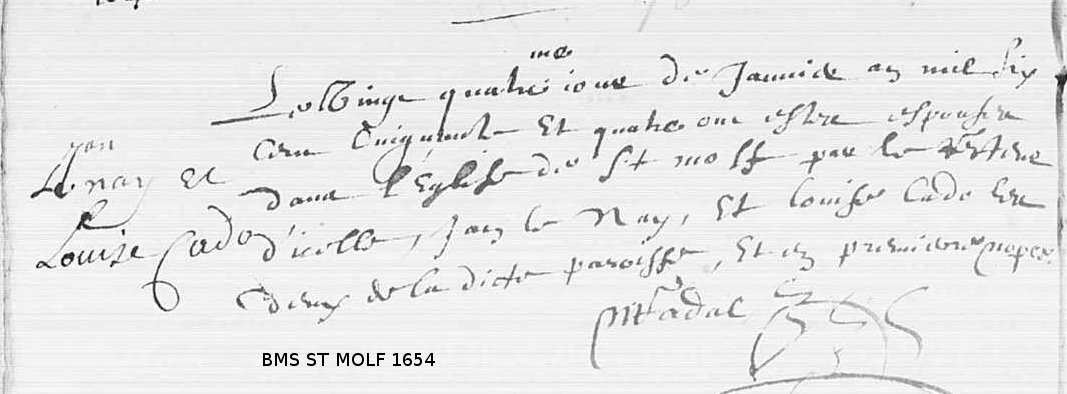 me
Le Vingt quatrie jour de Janvie an mil six
Cens Cinquante Et quatre ont estez espousez
dans l'Eglise de St molf par le Recteur
d'icelle, Jan le Nay, Et Louise Cado les
deux de la dicte paroisse, Et en premieres nopces.
Jan
Lenay Et
Louise Cado
BMS ST MOLF 1654